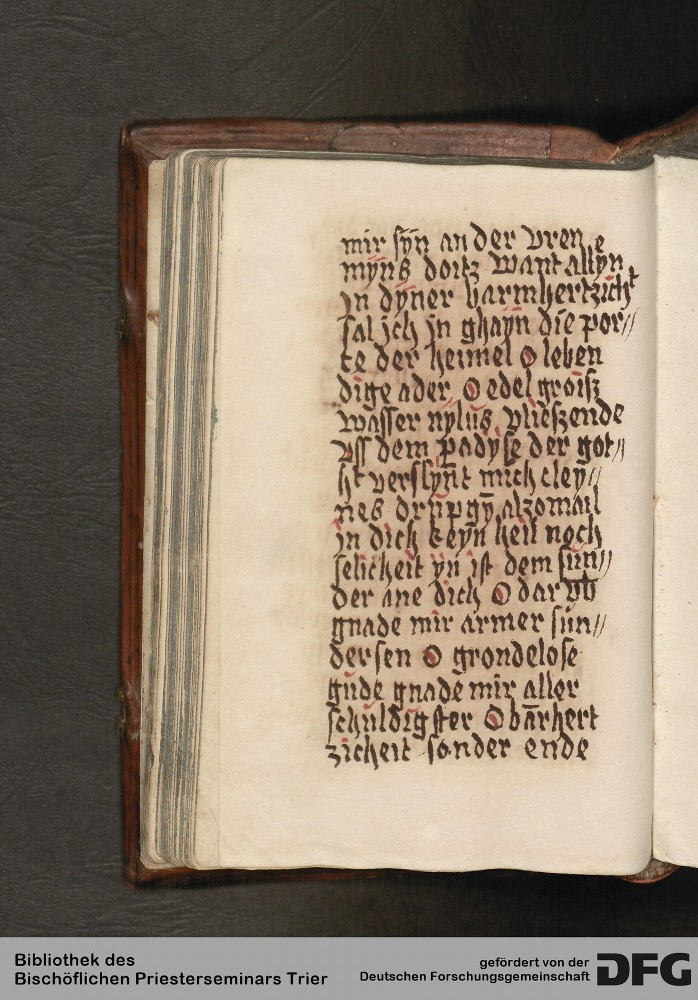 mir sÿn an der vren
mÿns doitz want allÿn e
jn dÿner barmhertzich t
sal jch jn ghaÿn die por//
te der heimel O leben
dige ader O edel groisz
wasser nÿlus vlieszende
vss dem padÿse der got//
ht verslÿnt mich cleÿ//
nes drupgÿ̄ alzomail
jn dich keÿn heil noch
selicheit ÿn ist dem sun//
der ane dich O dar vb
gnade mir armer sun//
dersen O grondelose
gude gnade mir aller
schuldigster O bārhert
zicheit sonder ende
Bibliothek des
Bischöflichen Priesterseminars Trier
gefördert von der
Deutschen Forschungsgemeinschaft DFG